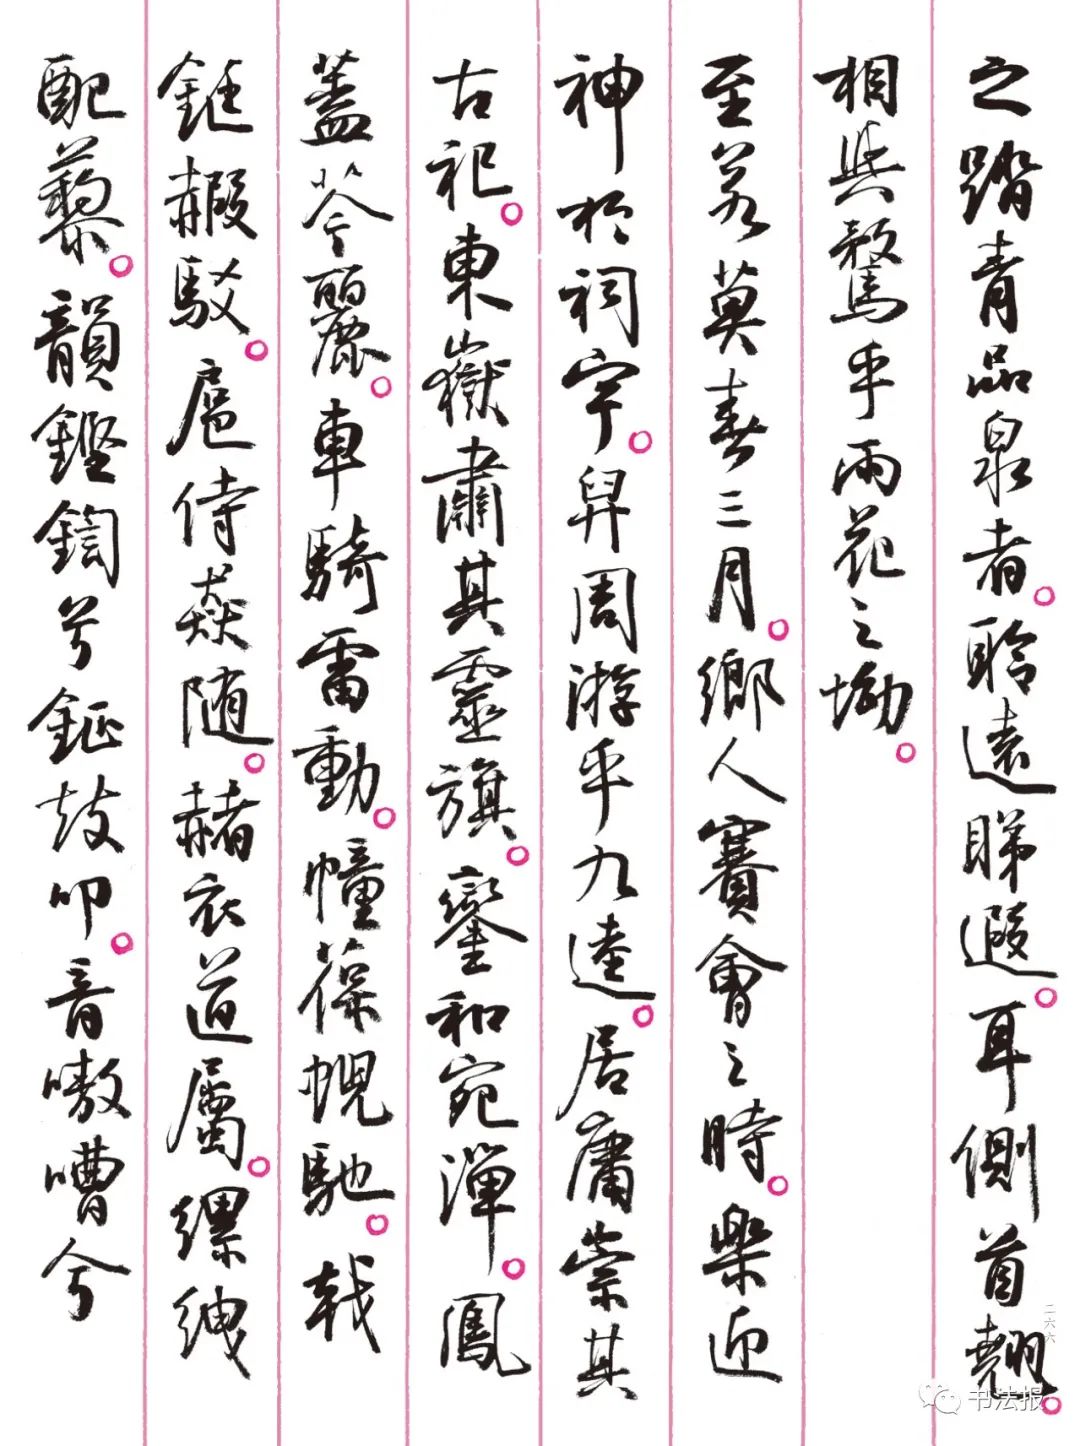 之踏青品泉者聆遠睇遐耳側首翹
相與驚乎雨花之坳
至若莫春三月鄉人賽會之時樂迎
神於祠宇舁周游乎九逵居庸崇其
古祀東嶽肅其靈旗鑾和宛渾鳳
蓋苓麗車騎雷動幢葆幌馳戟
鋋赮駁扈侍猋随赭衣道屬縲絏
配藜韻鏗鍧兮鉦鼓叩音嗷嘈兮
二六六
书法报